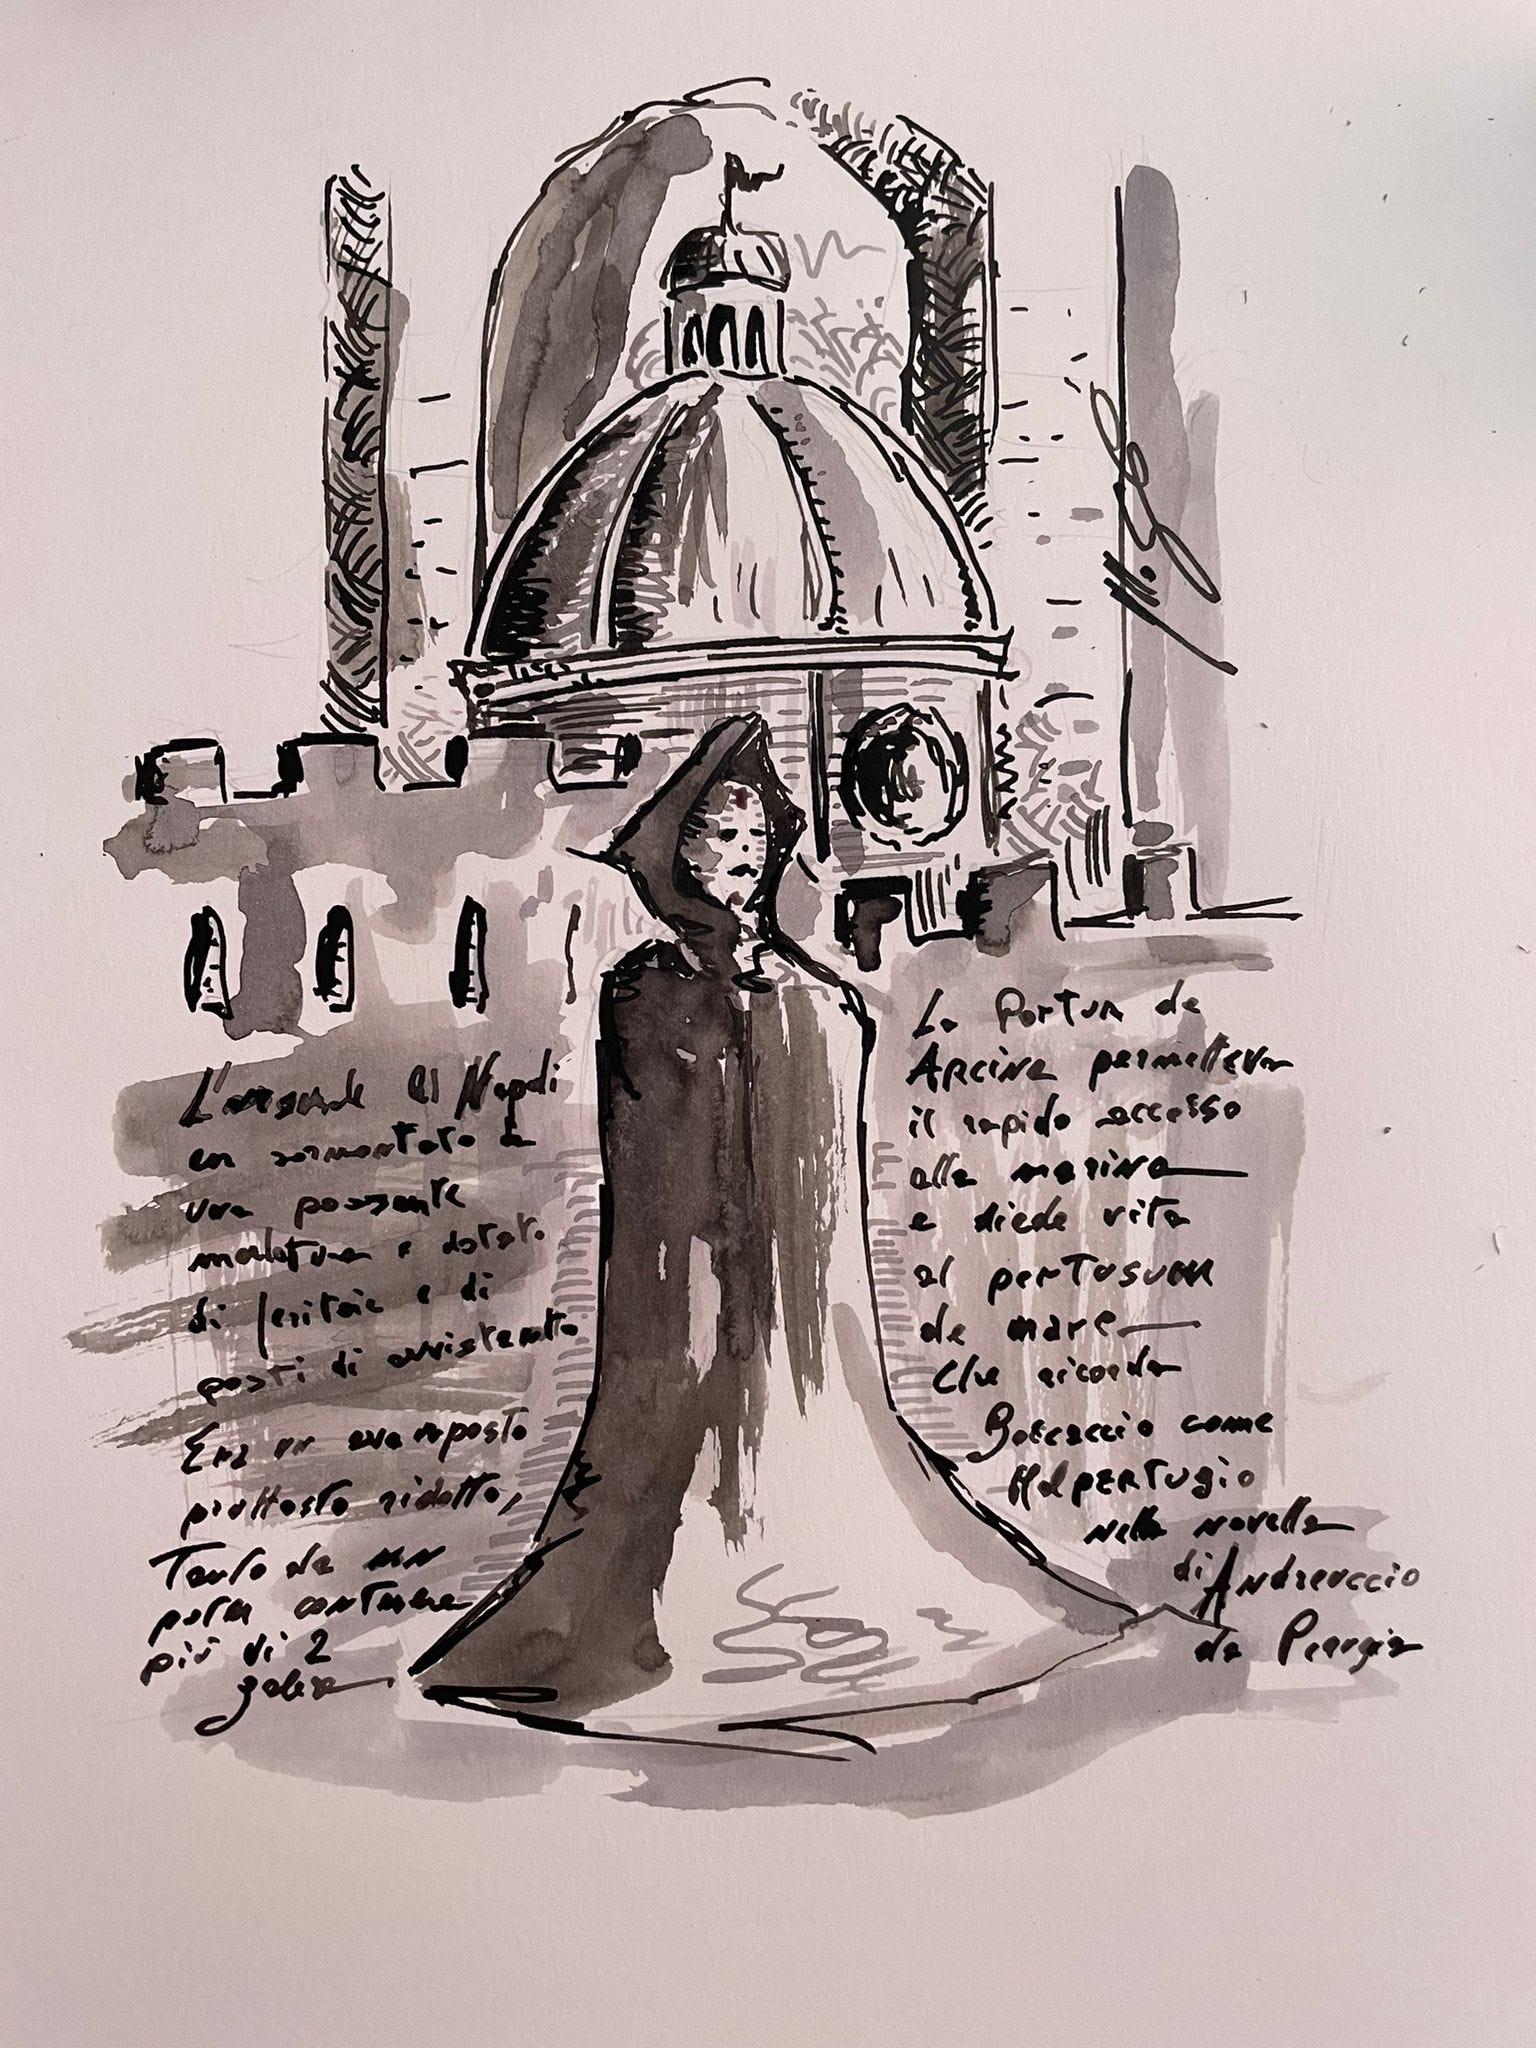 L'arsenale di Napoli
era sormontato da
una possente
merlatura e dotato
di feritoie e di
posti di avvistamento
Era un avamposto
piuttosto ridotto,
Tanto da non
poter contenere
più di 2
galere
La Portua de
Arcina permetteva
il rapido accesso
alla marina
e diede vita
al pertusum
de mare
che ricorda
Boccaccio come
Malpertugio
nella novella
di Andreuccio
da Perugia